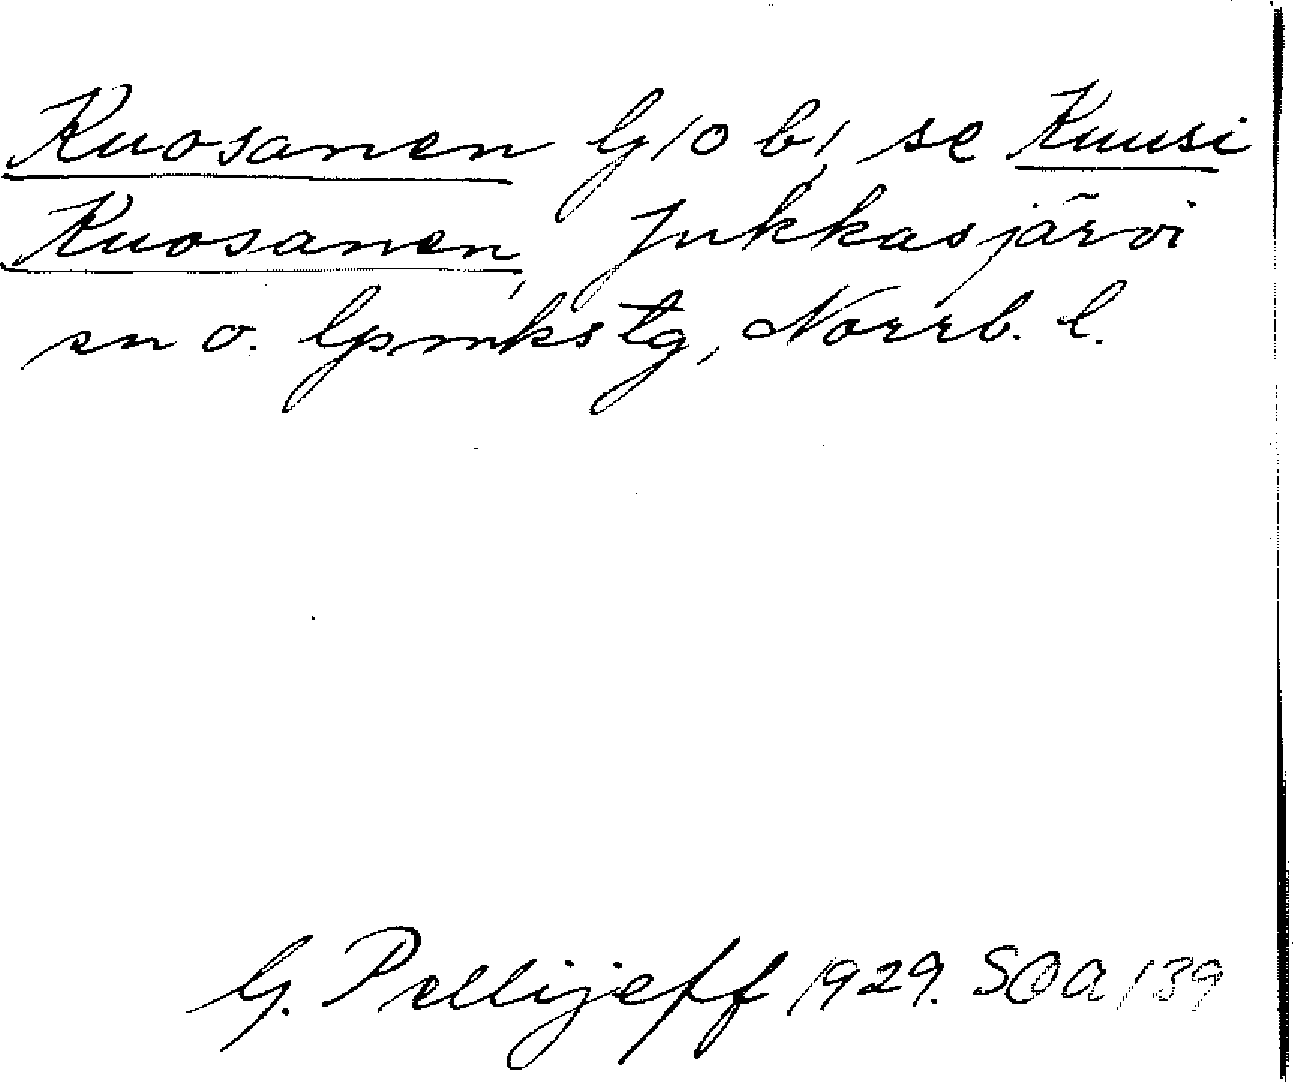 Kuosanen G 10 b, se Kuusi
Kuosanen, Jukkasjärvi
sn o. lpmkstg, Norrb. l.
G. Pellijeff 1929. SOA 139